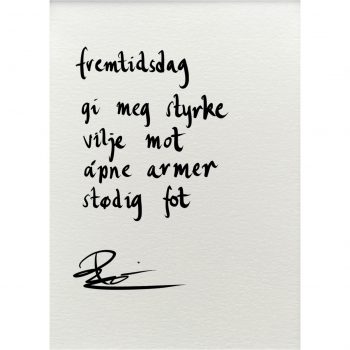 fremtidsdag
gi meg styrke
vilje mot
åpne armer
stødig fot